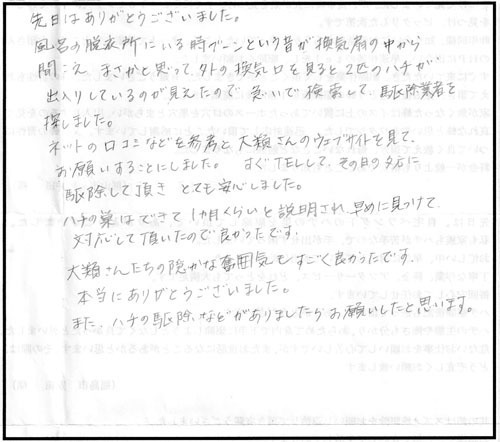 先日はありがとうございました。
風呂の脱衣所にいる時ブーンという音が換気扇の中から
聞こえ まさかと思って、外の換気口を見ると2匹のハチが
出入りしているのが見えたので、急いで検索して、駆除業者を
探しました。
ネットの口コミなどを参考と大類さんのウェブサイトを見て、
お願いすることにしました。 すぐTELして、その日の夕方に
駆除して頂き とても安心しました。
ハチの巣はできて1ヵ月くらいと説明され、早めに見つけて、
対応して頂いたので良かったです。
大類さんたちの穏かな雰囲気もすごく良かったです。
本当にありがとうございました。
また、ハチの駆除などがありましたらお願いしたと思います。